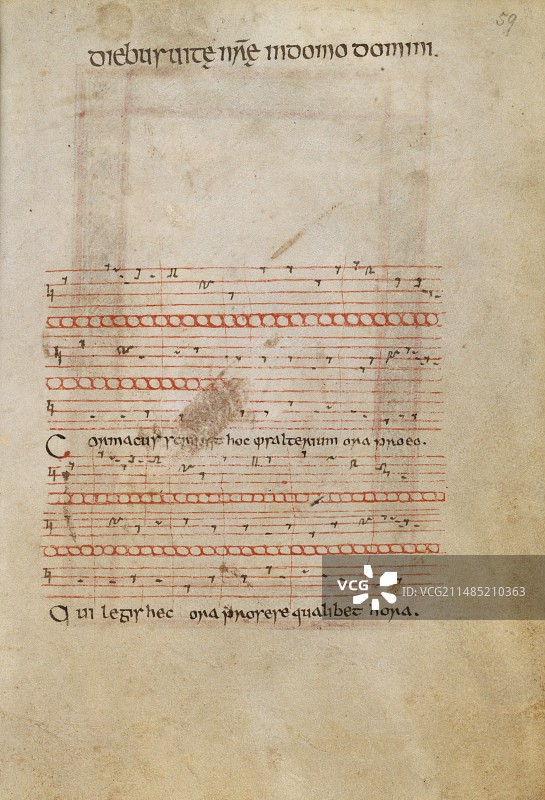 59
diebus uitę nr̄ę in domo domini.
Cormacus scripsit hoc psalterium ora pro eo.
Qui legis hec ora pro sese qualibet hora.
VCG
VCG ID:VCG211485210363